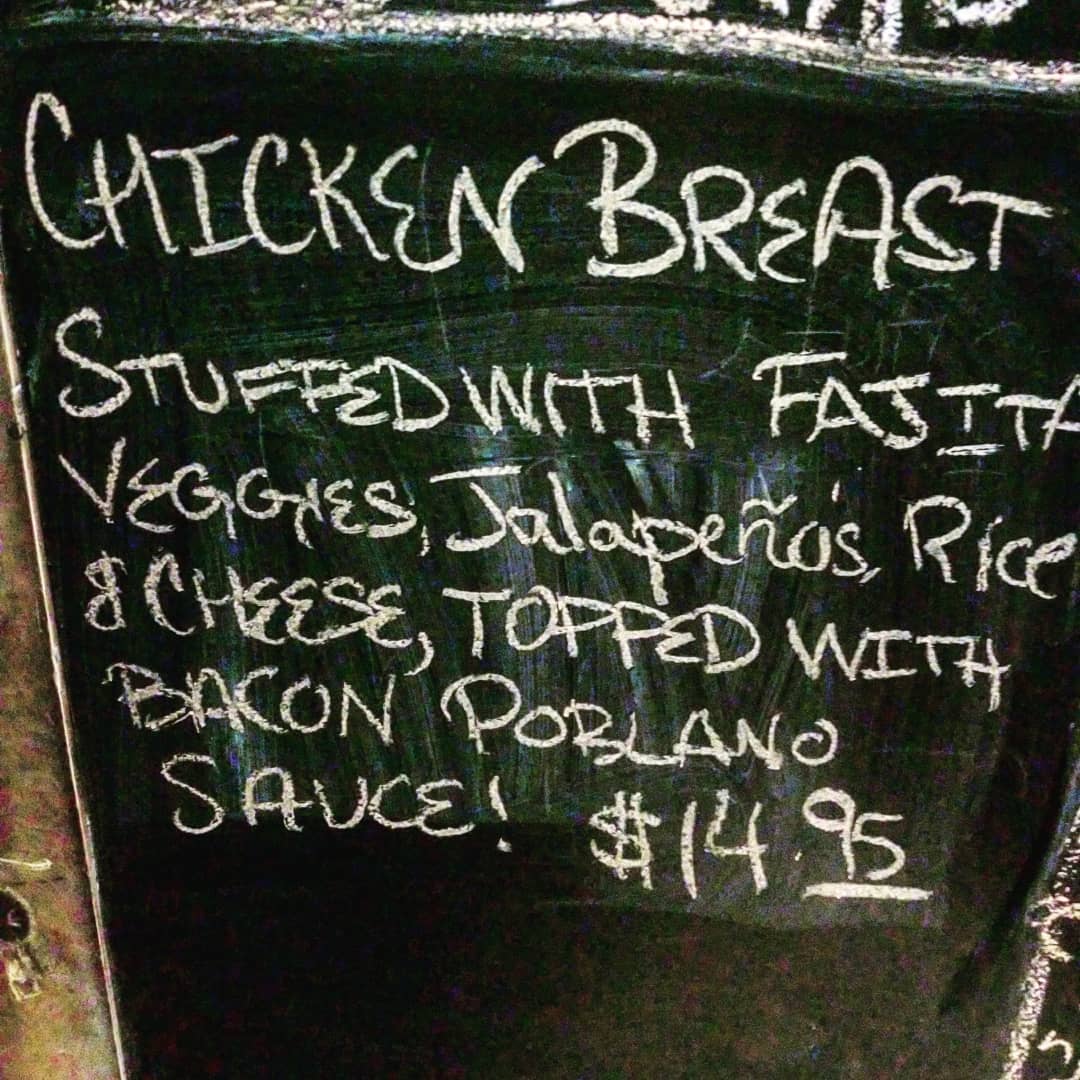 CHICKEN BREAST
STUFFED WITH FAJITA
VEGGIES, Jalapeño's, Rice
& CHEESE, TOPPED WITH
BACON POBLANO
SAUCE! $14.95